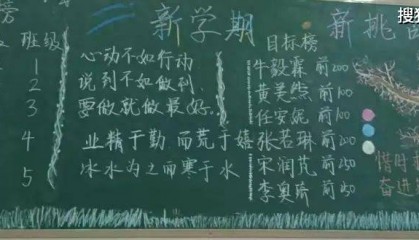 搜狐
新学期 新挑
榜 班级
1
2
3
4
5
心动不如行动
说到不如做到
要做就做最好…
业精于勤 而荒于嬉
冰水为之而寒于水
目标榜
牛毅霖 前200
黄昊然 前100
任安妮 前100
张若琳 前200
宋润芃 前150
李奥瑜 前150
惜时
奋进